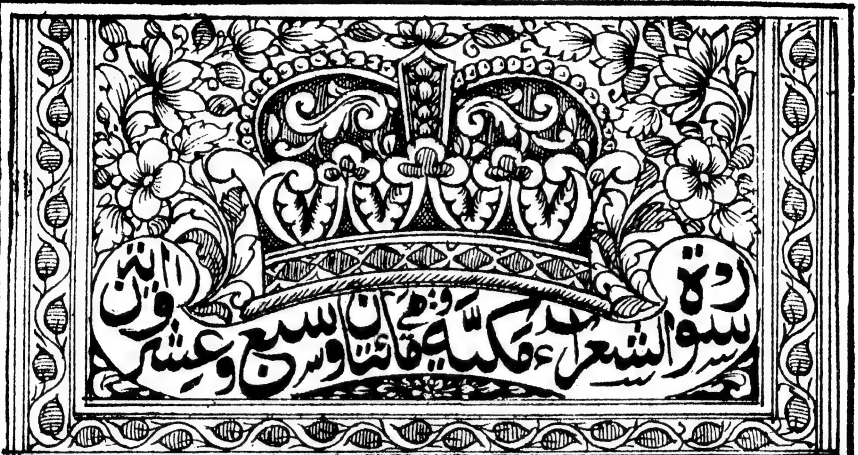 سورة الشعراء مكية وهي مائتان وسبع وعشرون اية